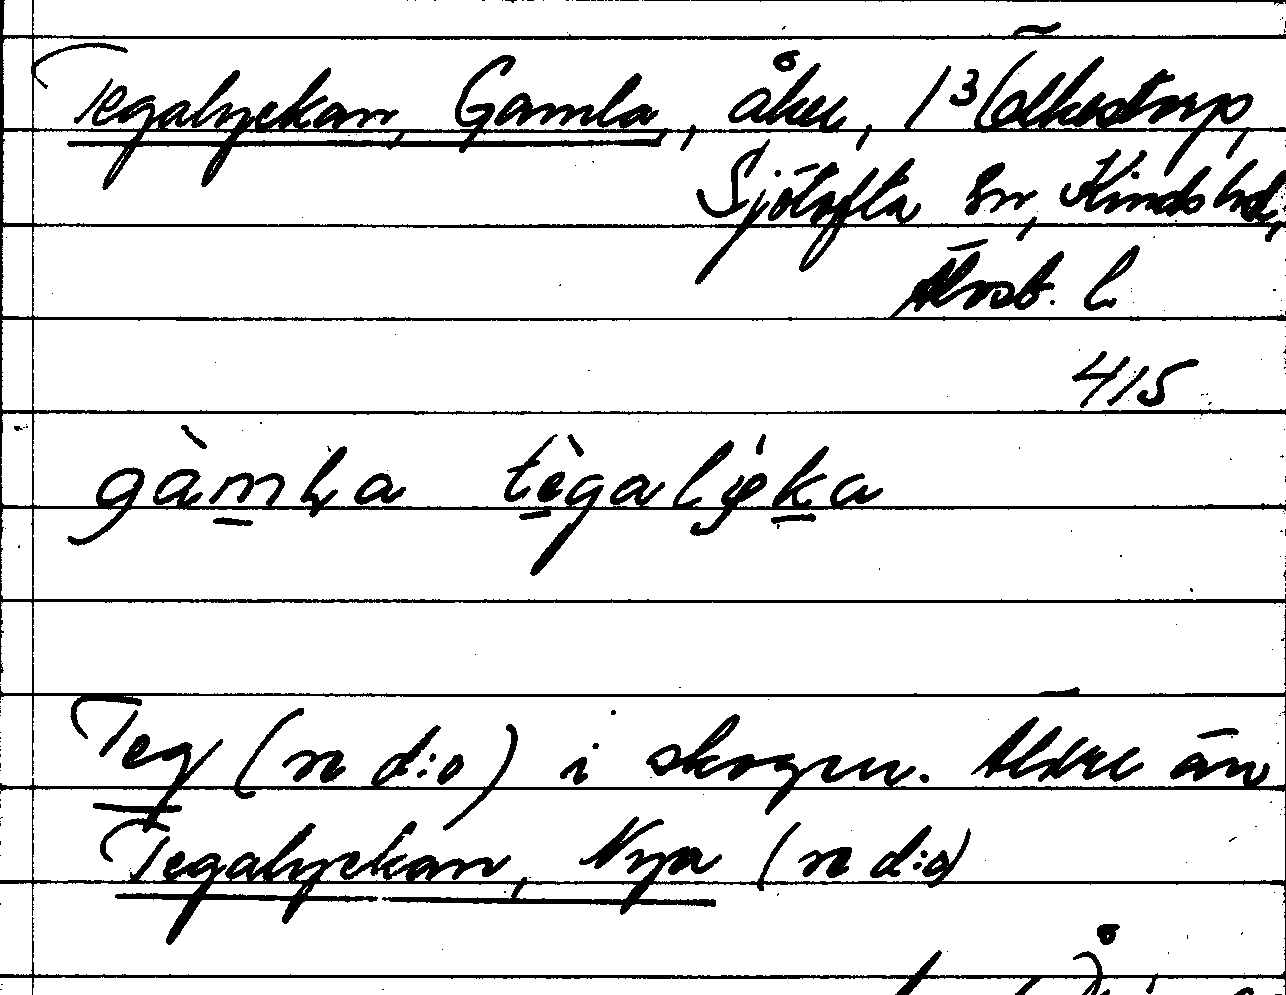 Tegalyckan, Gamla, åker, 1³ Ölkestorp,
Sjötofta sn, Kinds hd,
Älvsb. l.
415
gàmla tègalýka
Teg (se d:o) i skogen. Äldre än
Tegalyckan, Nya (se d:o)